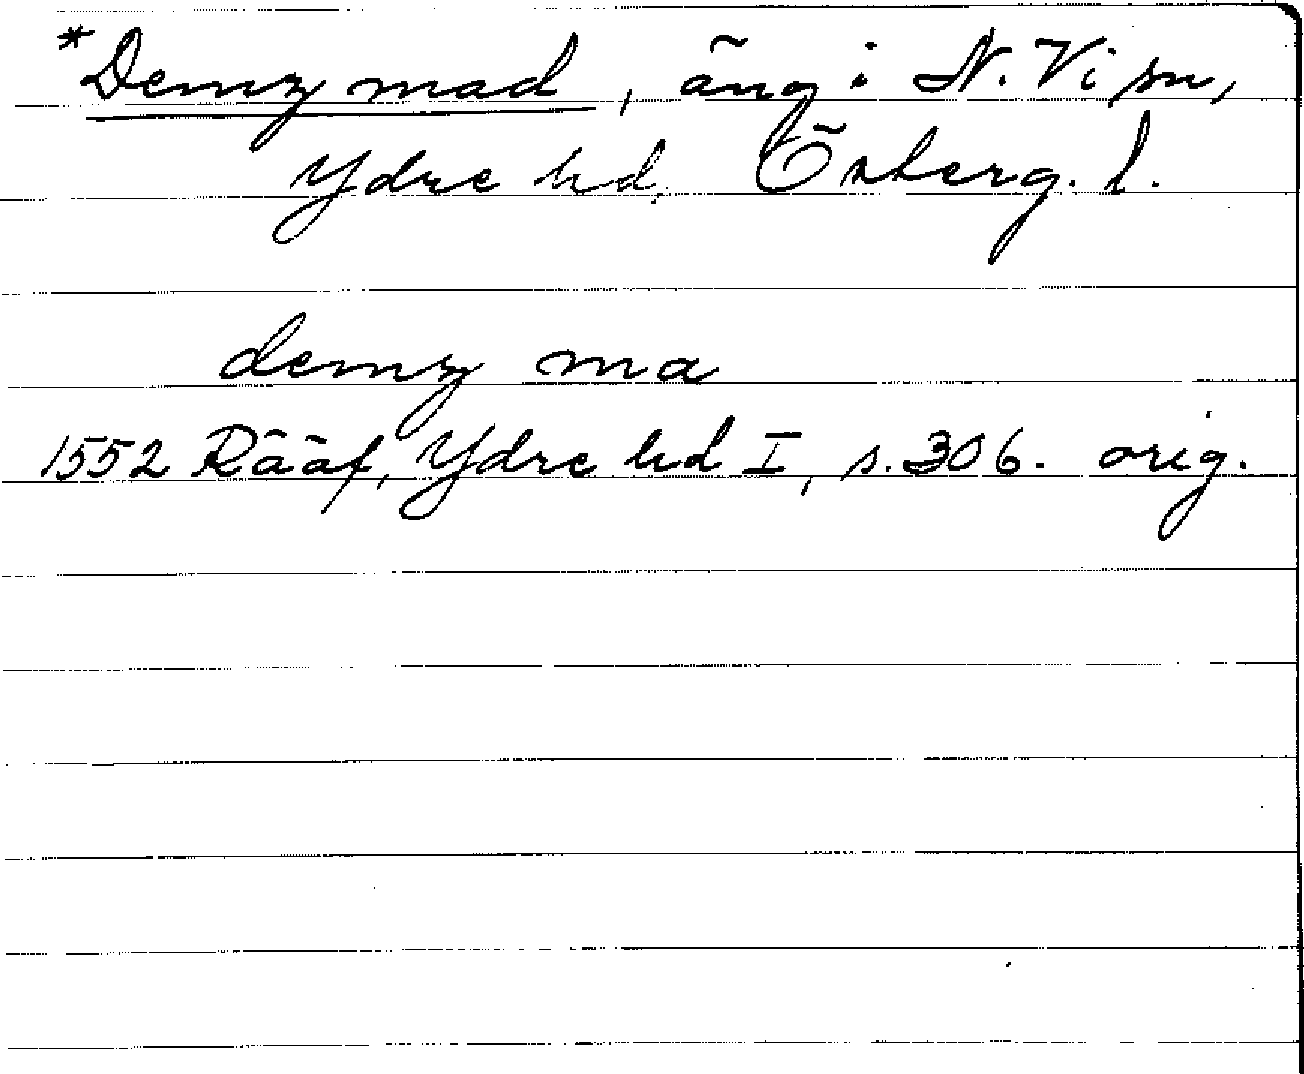 *Demy mad, äng i N. Vi sn,
Ydre hd, Österg. l.
demy ma
1552 Rääf, Ydre hd I, s. 306. orig.